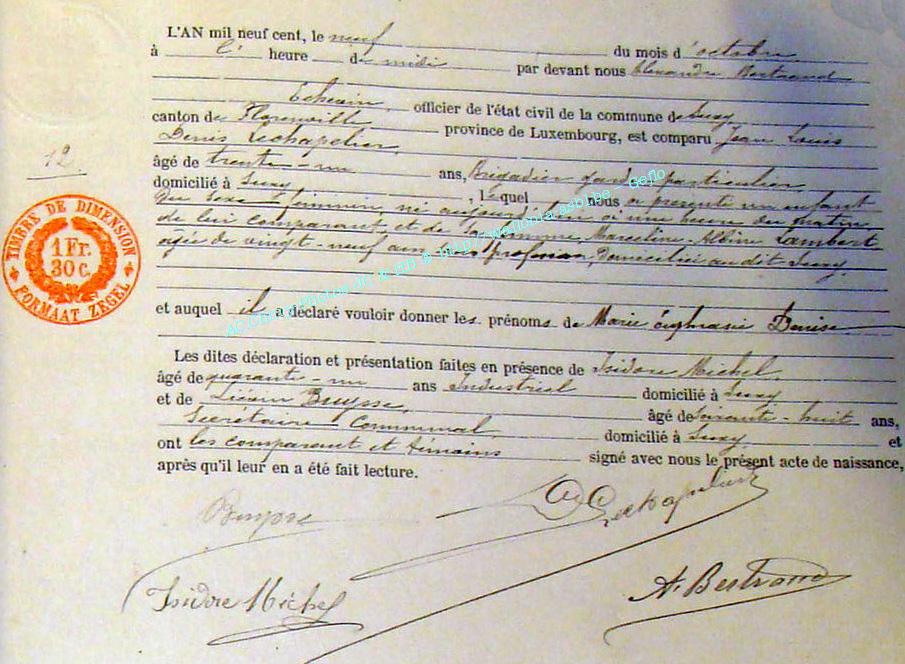 L'AN mil neuf cent, le neuf du mois d'octobre
à heure de midi par devant nous Alexandre Bertrand
Echevin, officier de l'état civil de la commune de Suxy
canton de Florenville province de Luxembourg, est comparu Jean Louis
Denis Lechapelier,
âgé de trente-un ans, Brigadier garde particulier
domicilié à Suxy, lequel nous a présenté un enfant
du sexe féminin, né aujourd'hui à une heure du matin,
de lui comparant, et de sa femme, Marceline Albine Lambert
âgée de vingt-neuf ans, sans profession, domiciliée au dit Suxy,
et auquel il a déclaré vouloir donner les prénoms de Marie Denise
Les dites déclaration et présentation faites en présence de Isidore Michel,
âgé de quarante-un ans Industriel domicilié à Suxy
et de Buysse, âgé de soixante-huit ans,
Secrétaire Communal, domicilié à Suxy, et
ont les comparant et témoins signé avec nous le présent acte de naissance,
après qu'il leur en a été fait lecture.
12
TIMBRE DE DIMENSION
1 Fr.
30 C.
FORMAAT ZEGEL
Buysse
Lechapelier
Isidore Michel
A. Bertrand